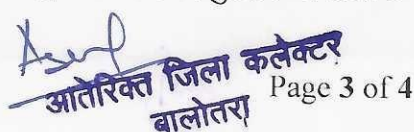 आतेरिक्त जिला कलेक्टर
बालोतरा
Page 3 of 4